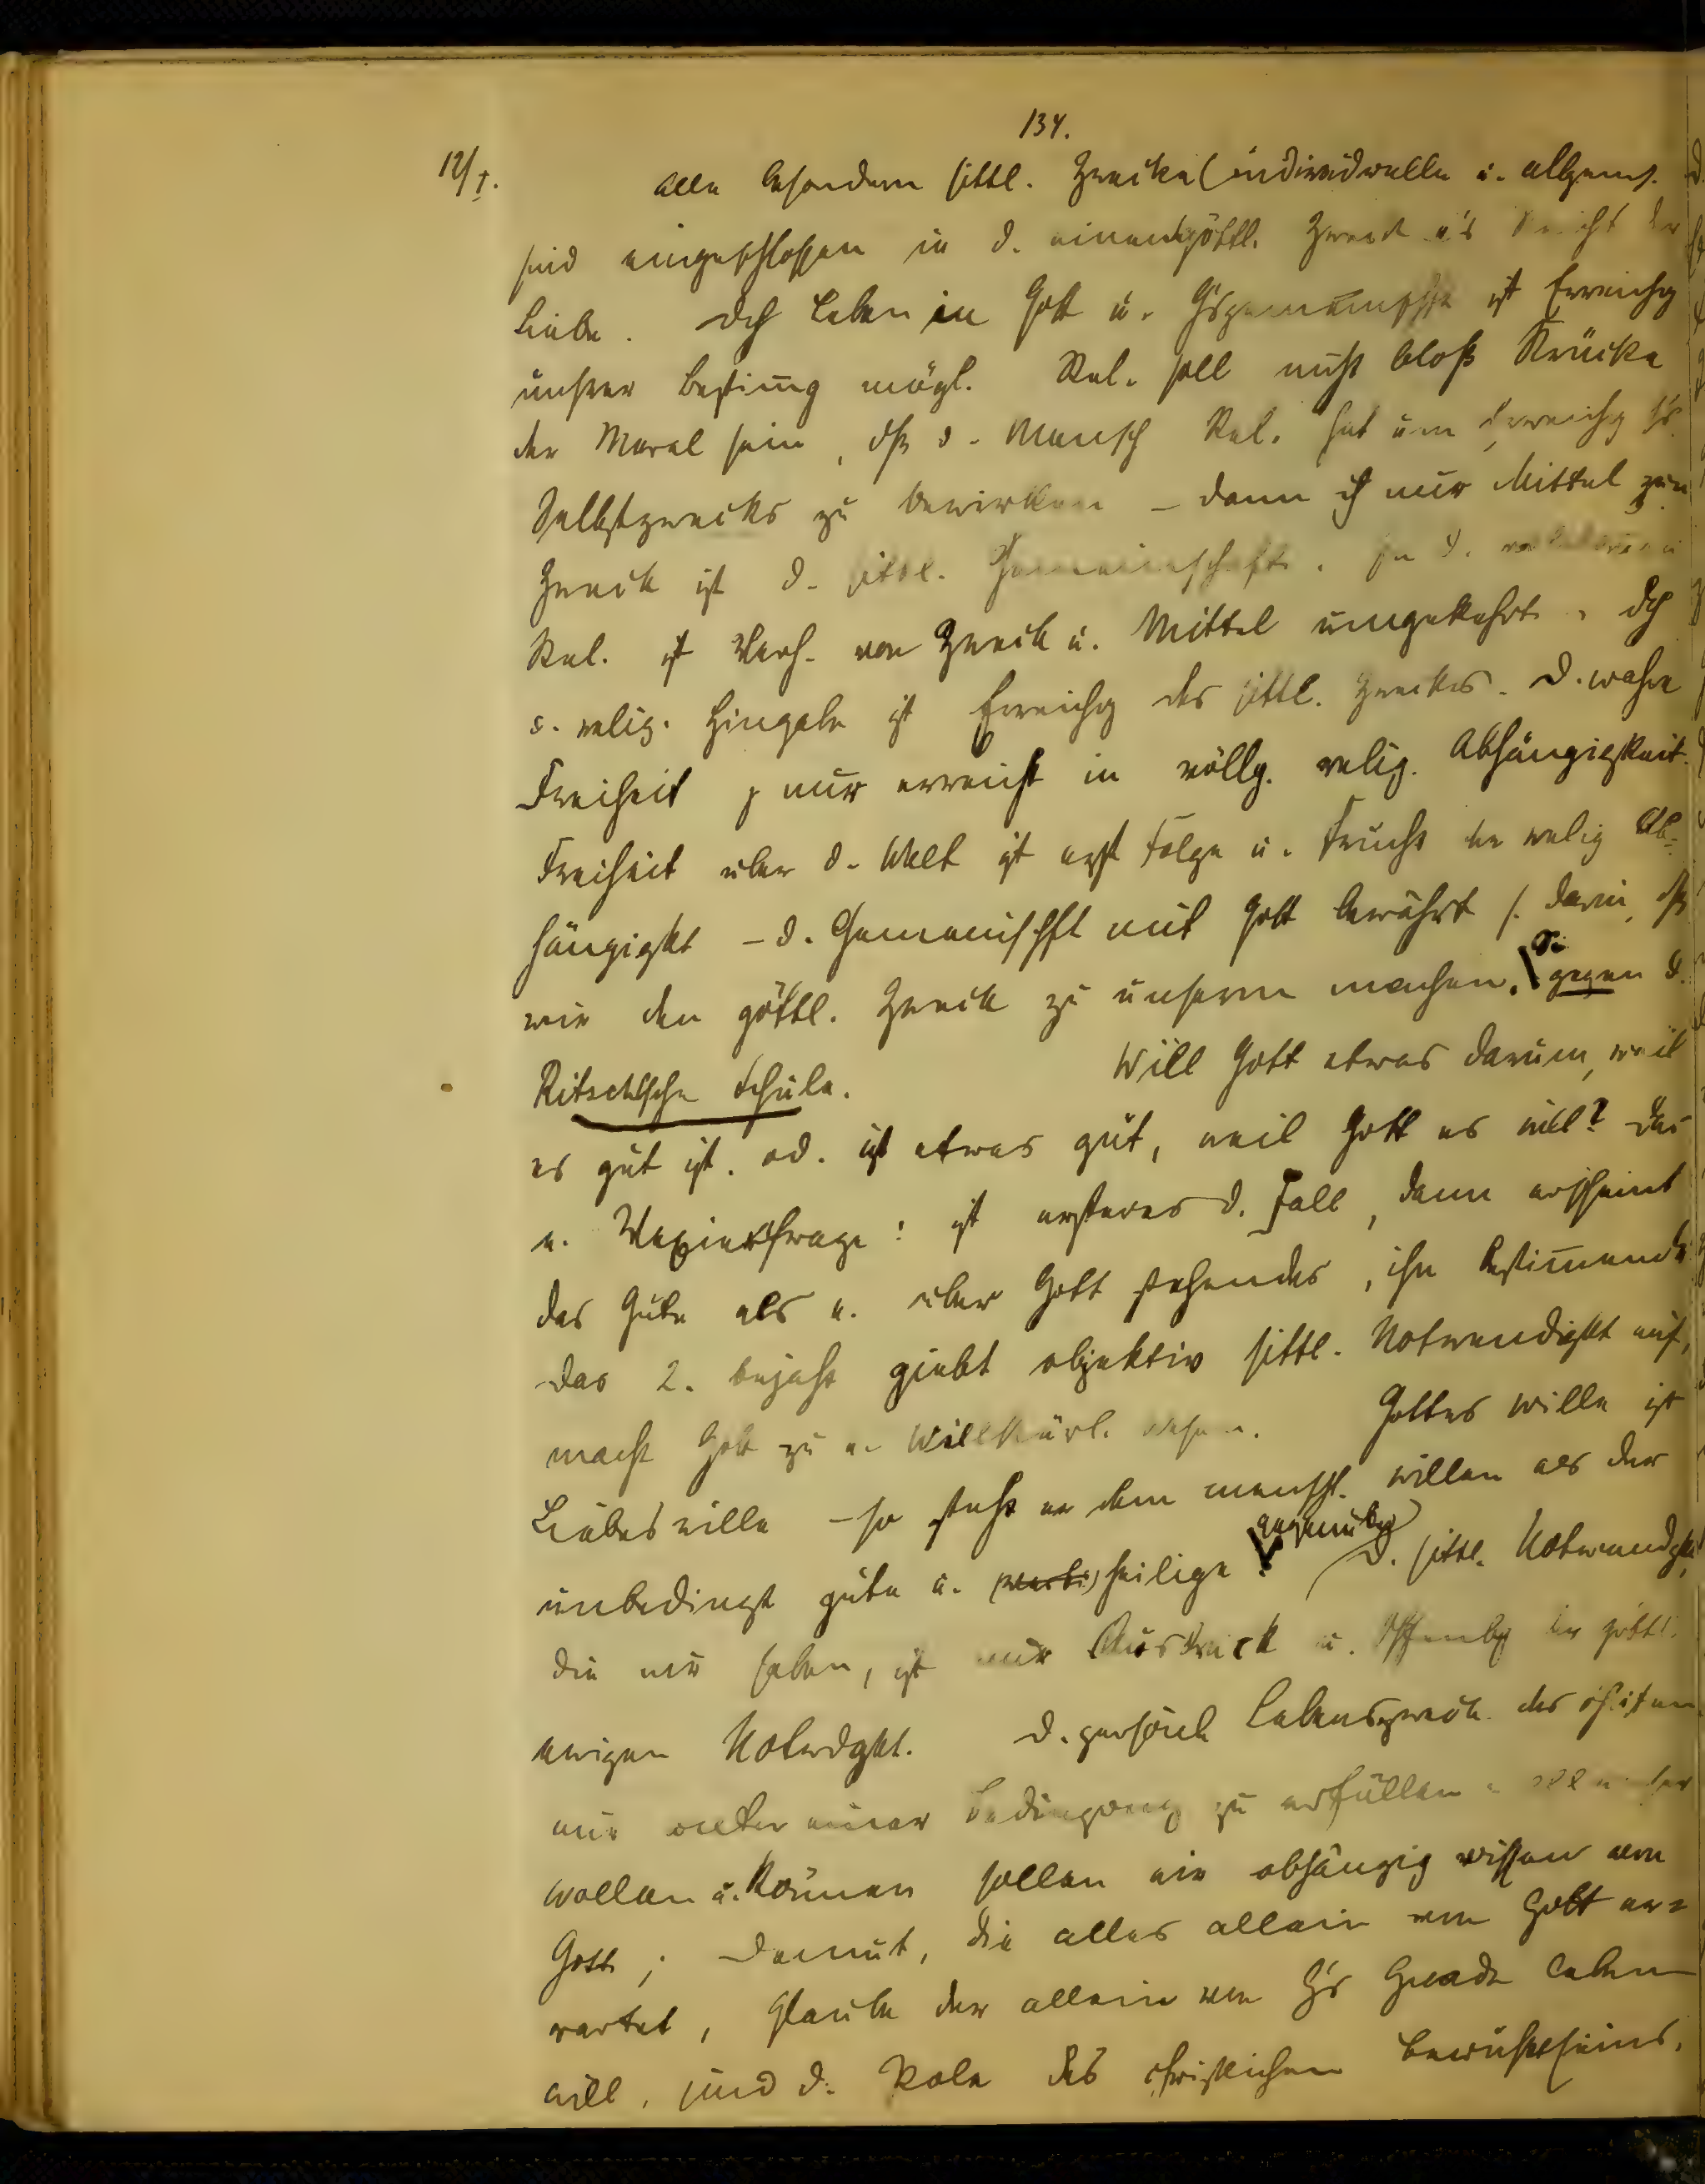 134.
12/I.
alle besondern sittl. Zwecke (individuelle u. allgem.
sind eingeschlossen in d. einen göttl. Zweck d's Reichs der
Liebe. Dch Leben in Gott u. ist Erreichg
unsrer Bestim̄g mögl. Rel. soll nicht bloß Krücke
der Moral sein, dß d. Mensch Rel. hat um Erreichg s's
Selbstzwecks zu bewirken – dann ist nur Mittel zum
Zweck ist d. sittl. Gemeinschaft. In d.
Rel. ist Verh. von Zweck u. Mittel umgekehrt. Dch
d. relig. Hingabe ist Erreichg des sittl. Zweckes. D. wahre
Freiheit nur erreicht in völlg. relig. Abhängigkeit.
Freiheit über d. Welt ist erst Folge u. Frucht der relig Ab-
hängigkt – d. Gemeinschft mit Gott bewährt s. darin, dß
wir den göttl. Zweck zu unserm machen. gegen d.
Ritschlsche Schule. Will Gott etwas darum, weil
es gut ist. od. ist etwas gut, weil Gott es will? Das
e. Vexierfrage: ist ersteres d. Fall, dann erscheint
das Gute als e. über Gott stehendes, ihn bestim̄endes
das 2. bejaht giebt objektiv sittl. Notwendigkt auf,
macht Gott zu e. Willkürl. Wesen. Gottes Wille ist
Liebeswille – so steht er dem menschl. Willen als der
unbedingt gute u. heilige gegenüber. D. sittl. Notwendgkt,
die wir haben, ist nur Ausdruck u. Offenbg der göttl.
ewigen Notwdgkt. D. persönl Lebenszweck des Christen
nur unter einer Bedingung zu erfüllen
Wollen u. Können sollen wir abhängig wissen von
Gott; Demut, die alles allein von Gott er-
wartet, Glaube der allein von G's Gnade leben
will, sind d. Pole des christlichen Bewußtseins.